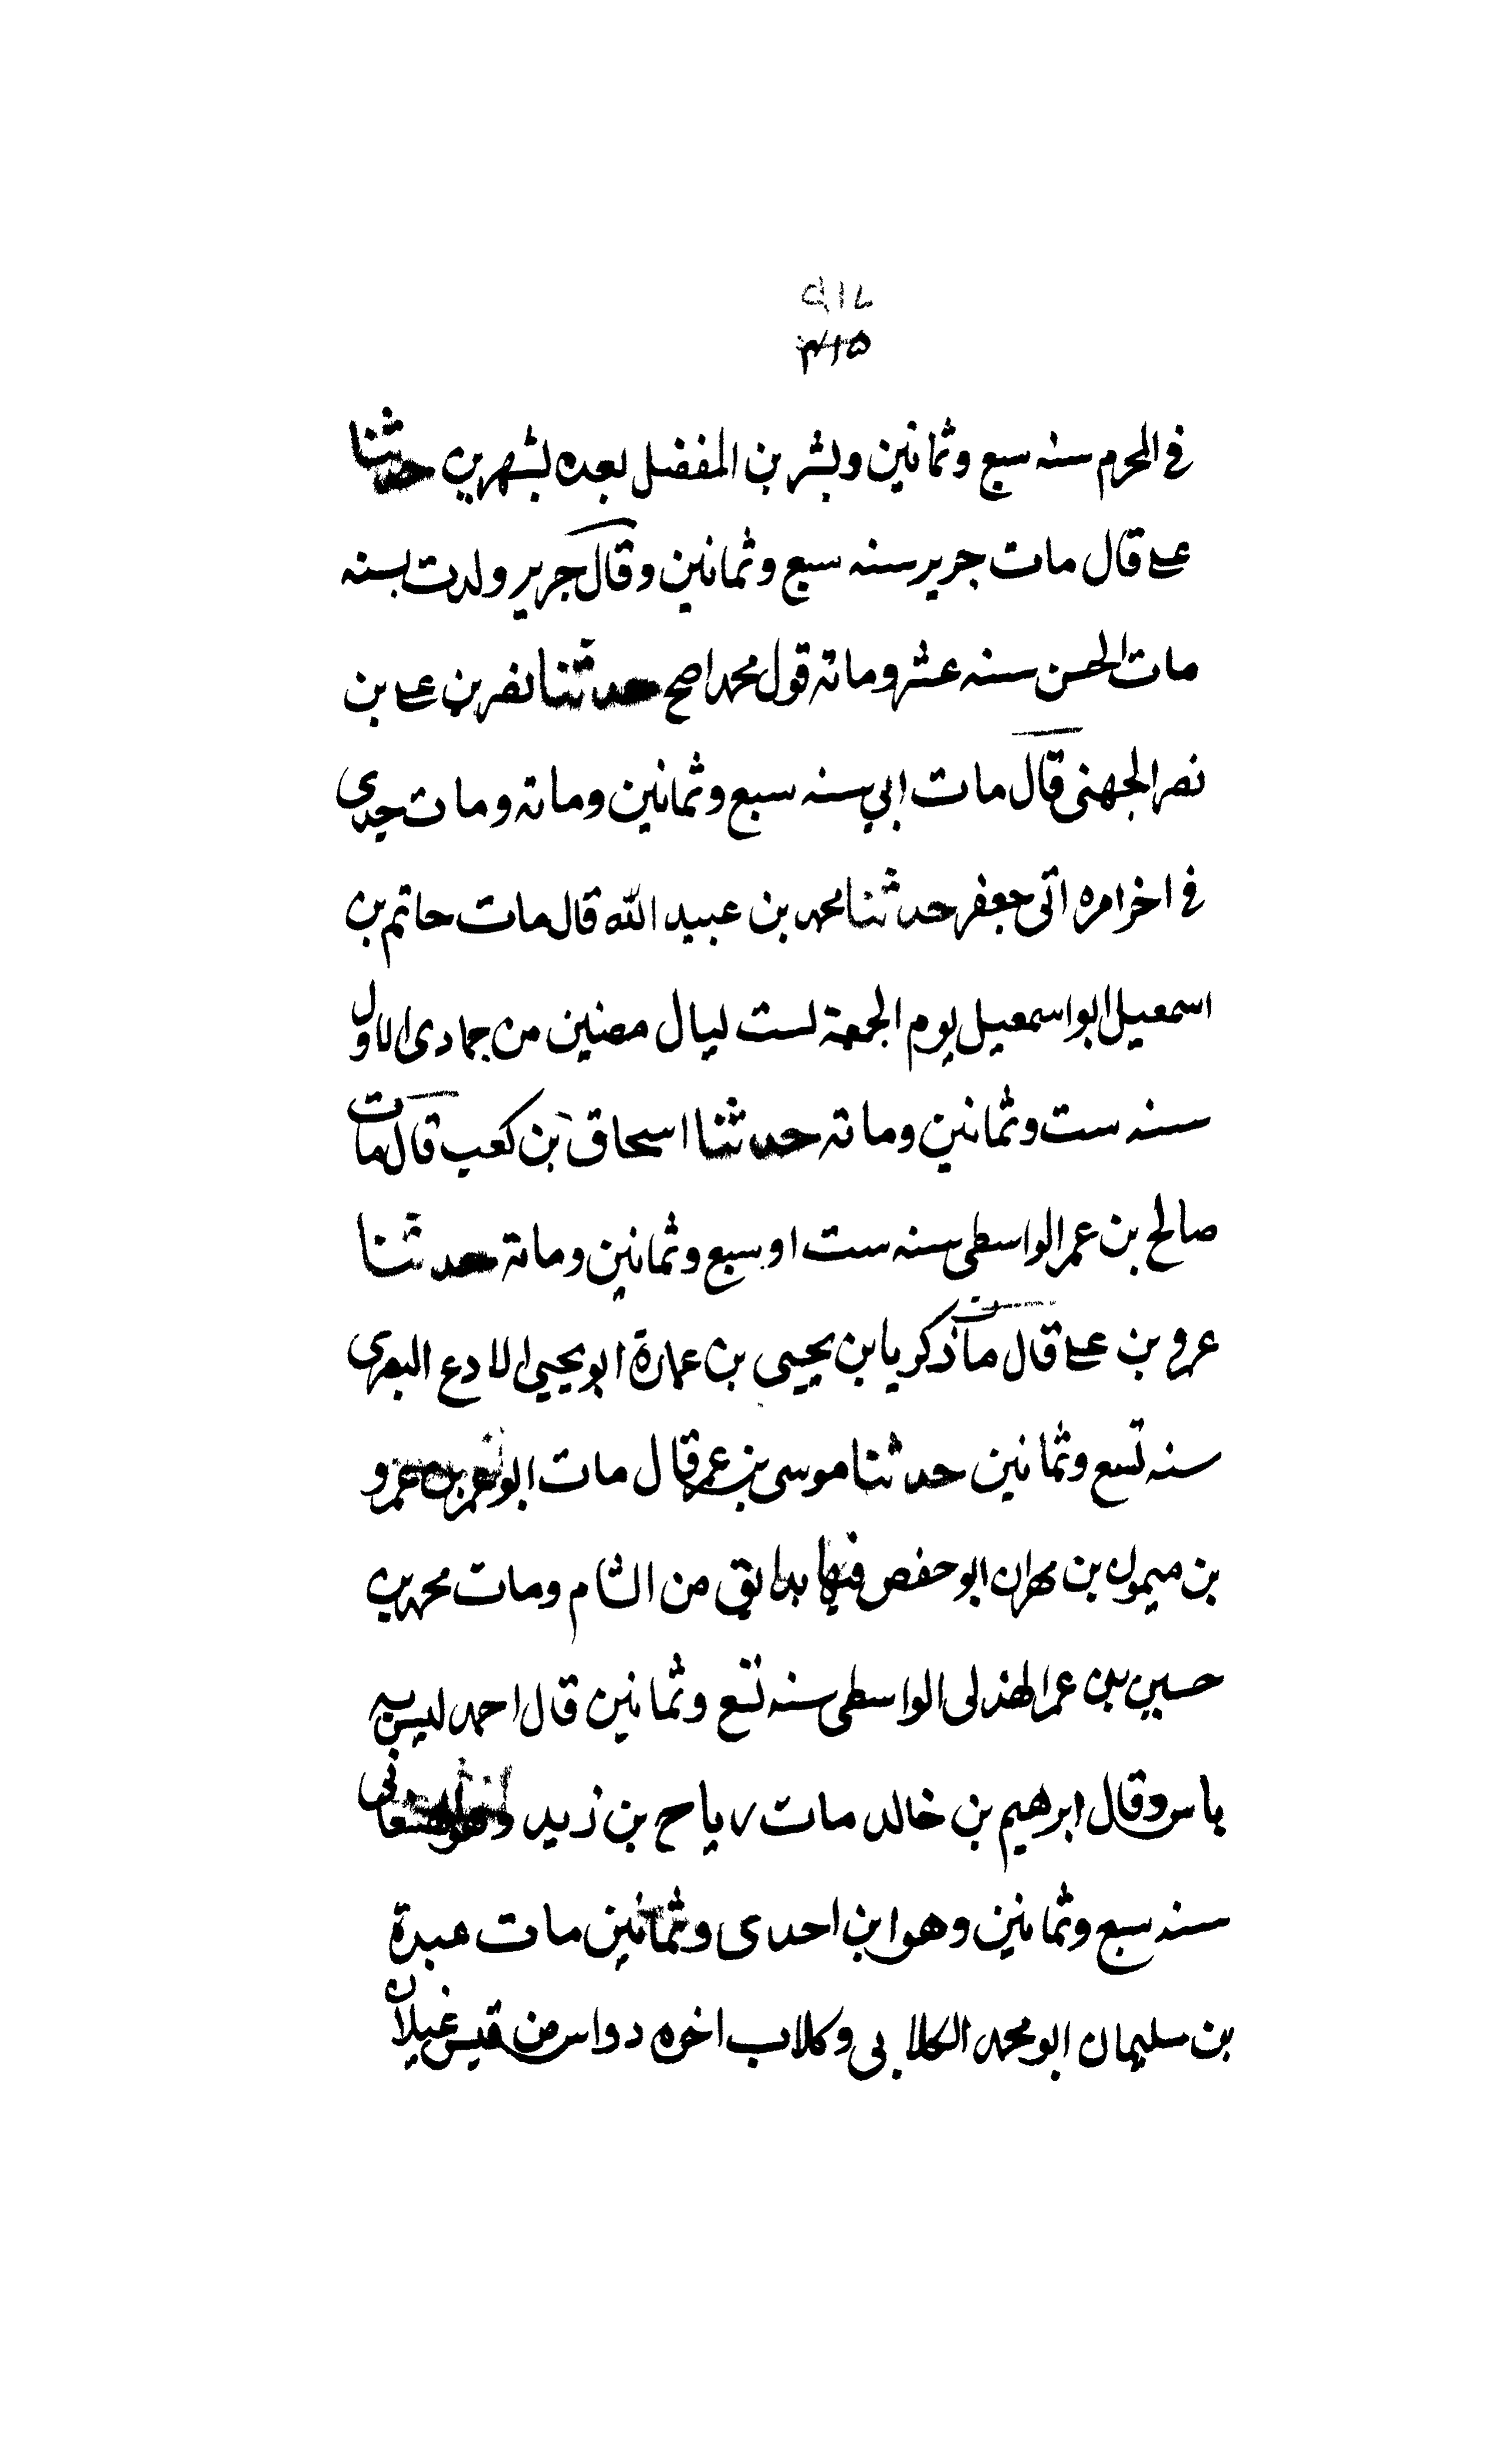 في المحرم سنه سبع وثمانين وبشر بن المفضل بعده بشهرين حدثنا
علے قال مات جرير سنه سبع وثمانين وقال جرير ولدت لسنه
مات الحسن سنه عشر ومائه قول محمد اصح حدثنا نصر بن علے بن
نصر الجهنى قال مات ابي سنه سبع وثمانين ومائه ومات جدى
في اخر امره اتى جعفر حدثنا محمد بن عبيد الله قال مات حاتم بن
اسمعيل ابو اسمعيل يوم الجمعة لست ليال مضين من جمادى الاول
سنه ست وثمانين ومائه حدثنا اسحاق بن كعب قال مات
صالح بن عمر الواسطى سنه ست او سبع وثمانين ومائة حدثنا
عرو بن علے قال مات زكريا بن يحيى بن عمارة ابو يحيى الادع البصرى
سنه تسع وثمانين حدثنا موسى بن عمر قال مات ابو عمر بن عمرو
بن ميمون بن مهران ابو حفص فيها بدابق من الشام ومات محمد بن
حسين بن عمر الهذلى الواسطى سنه تسع وثمانين قال احمد ليس به
باس وقال ابرهيم بن خالد مات رياح بن زيد وهو الصنعانى
سنه سبع وثمانين وهو ابن احدى وثمانين مات عبدة
بن سليمان ابو محمد الكلابى وكلاب اخوه دواس من قيس غيلان